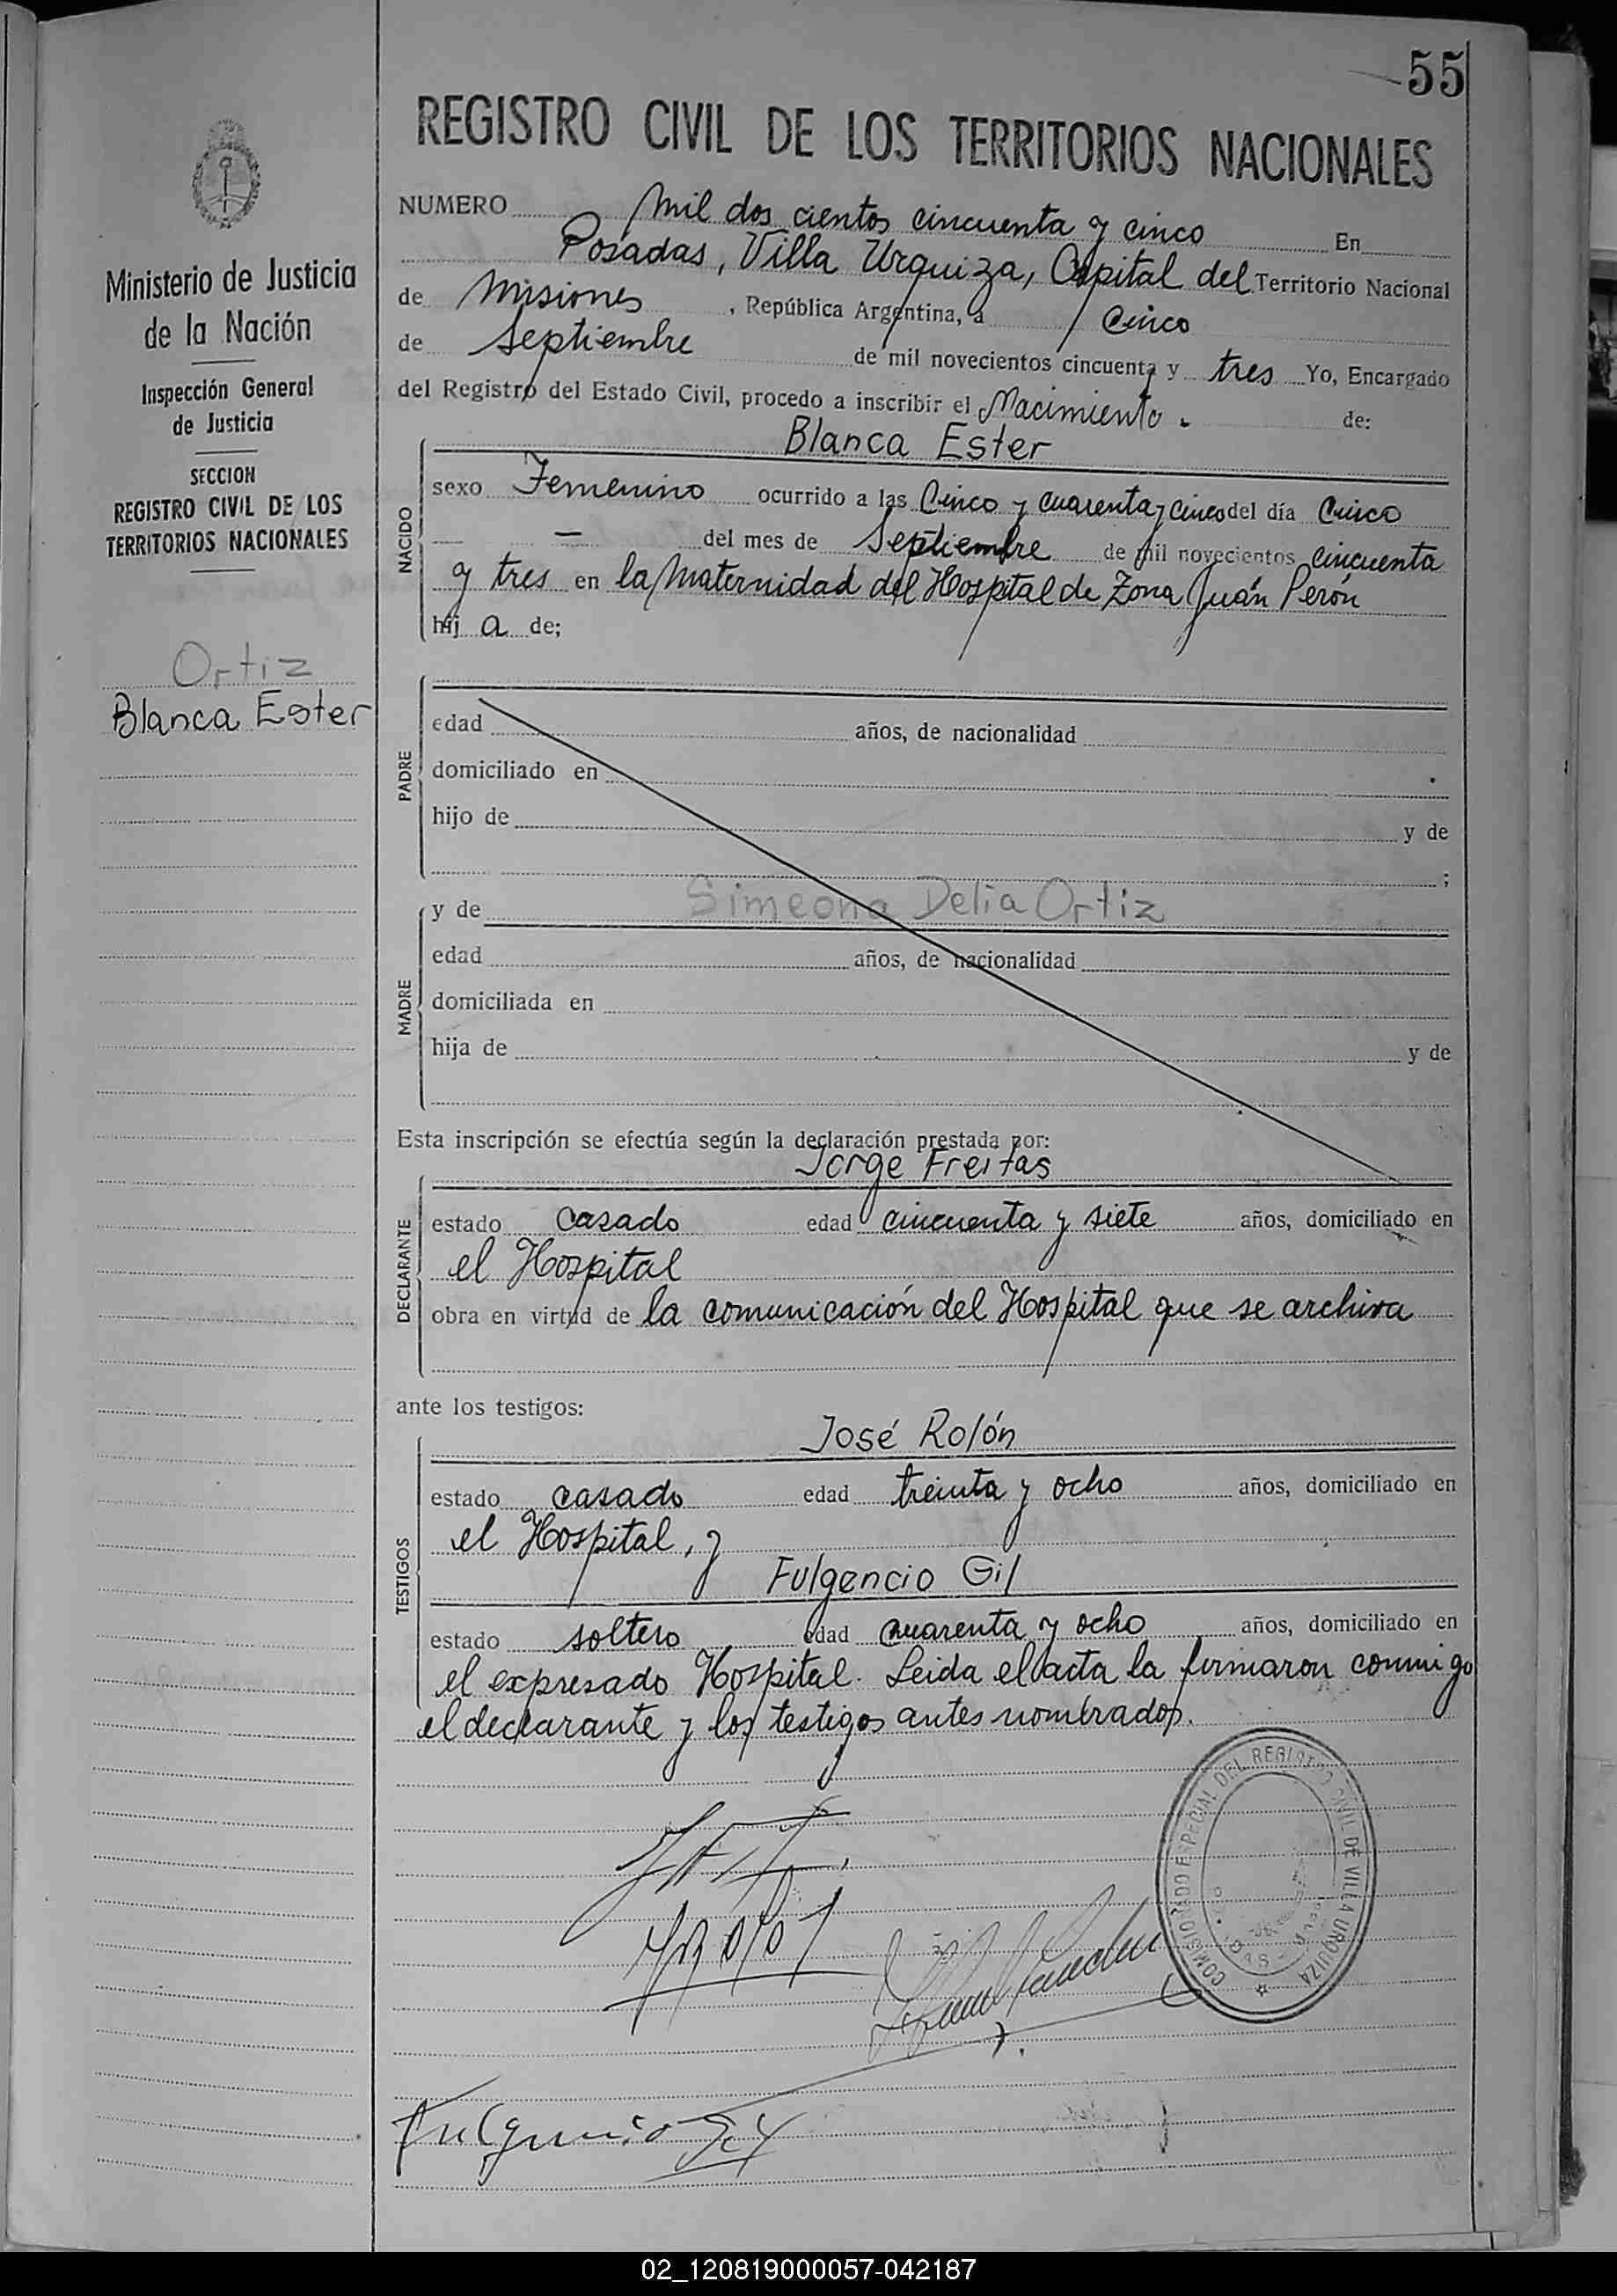 55
REGISTRO CIVIL DE LOS TERRITORIOS NACIONALES
Ministerio de Justicia
de la Nación
Inspección General
de Justicia
SECCION
REGISTRO CIVIL DE LOS
TERRITORIOS NACIONALES
Ortiz
Blanca Ester
NUMERO Mil dos cientos cincuenta y cinco En
Posadas, Villa Urquiza, Capital del Territorio Nacional
de Misiones, República Argentina, a Cinco
de Septiembre de mil novecientos cincuenta y tres Yo, Encargado
del Registro del Estado Civil, procedo a inscribir el Nacimiento. de:
Blanca Ester
NACIDO
sexo Femenino ocurrido a las Cinco y cuarenta y cinco del día Cinco
— del mes de Septiembre de mil novecientos cincuenta
y tres en la Maternidad del Hospital de Zona Juán Perón
hij a de;
PADRE
edad años, de nacionalidad
domiciliado en
hijo de y de
;
MADRE
y de Simeona Delia Ortiz
edad años, de nacionalidad
domiciliada en
hija de y de
Esta inscripción se efectúa según la declaración prestada por:
Jorge Freitas
DECLARANTE
estado casado edad cincuenta y siete años, domiciliado en
el Hospital
obra en virtud de la comunicación del Hospital que se archiva
ante los testigos:
José Rolón
TESTIGOS
estado casado edad treinta y ocho años, domiciliado en
el Hospital, y
Fulgencio Gil
estado soltero edad cuarenta y ocho años, domiciliado en
el expresado Hospital. Leida el acta la firmaron conmigo
el declarante y los testigos antes nombrados.
COMISIONADO ESPECIAL DEL REGISTRO CIVIL DE VILLA URQUIZA
Fulgencio Gil
02_120819000057-042187